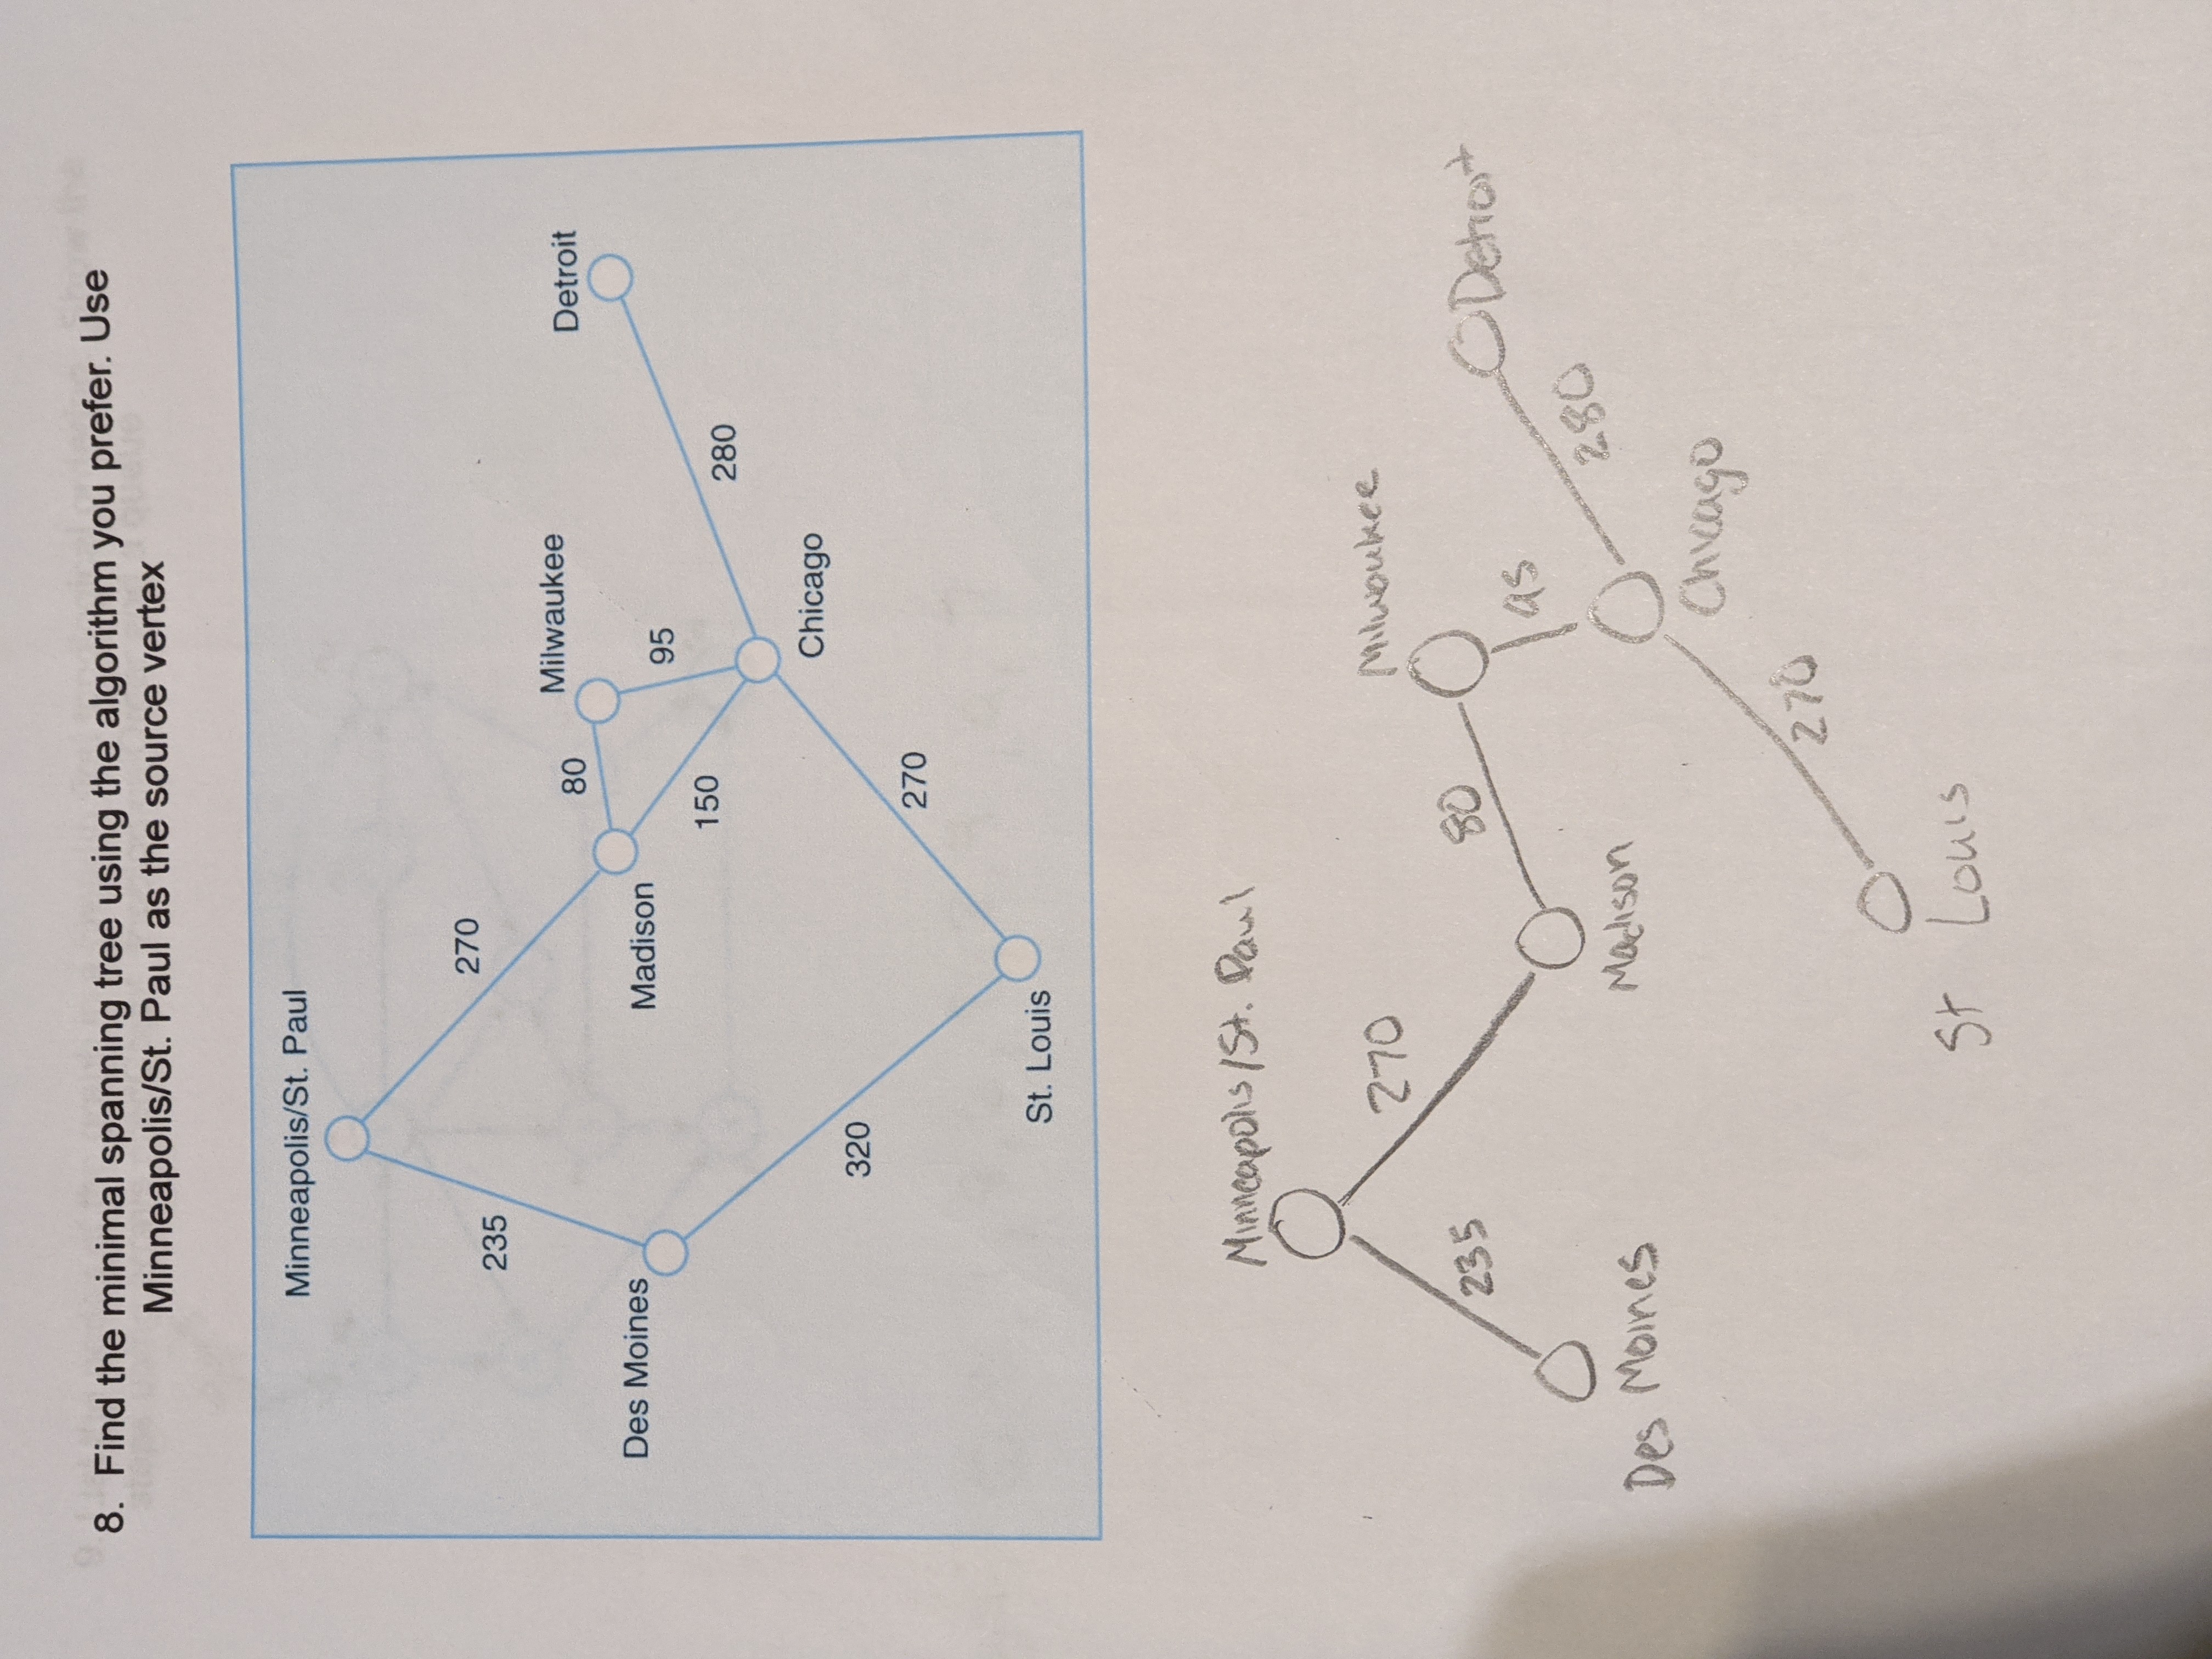 8. Find the minimal spanning tree using the algorithm you prefer. Use
Minneapolis/St. Paul as the source vertex
Minneapolis/St. Paul
270
235
Milwaukee
80
Detroit
Des Moines
Madison
95
150
280
Chicago
320
270
St. Louis
Minneapolis/St. Paul
270
Milwaukee
235
80
Detroit
95
280
Des Moines
Madison
Chicago
270
St Louis